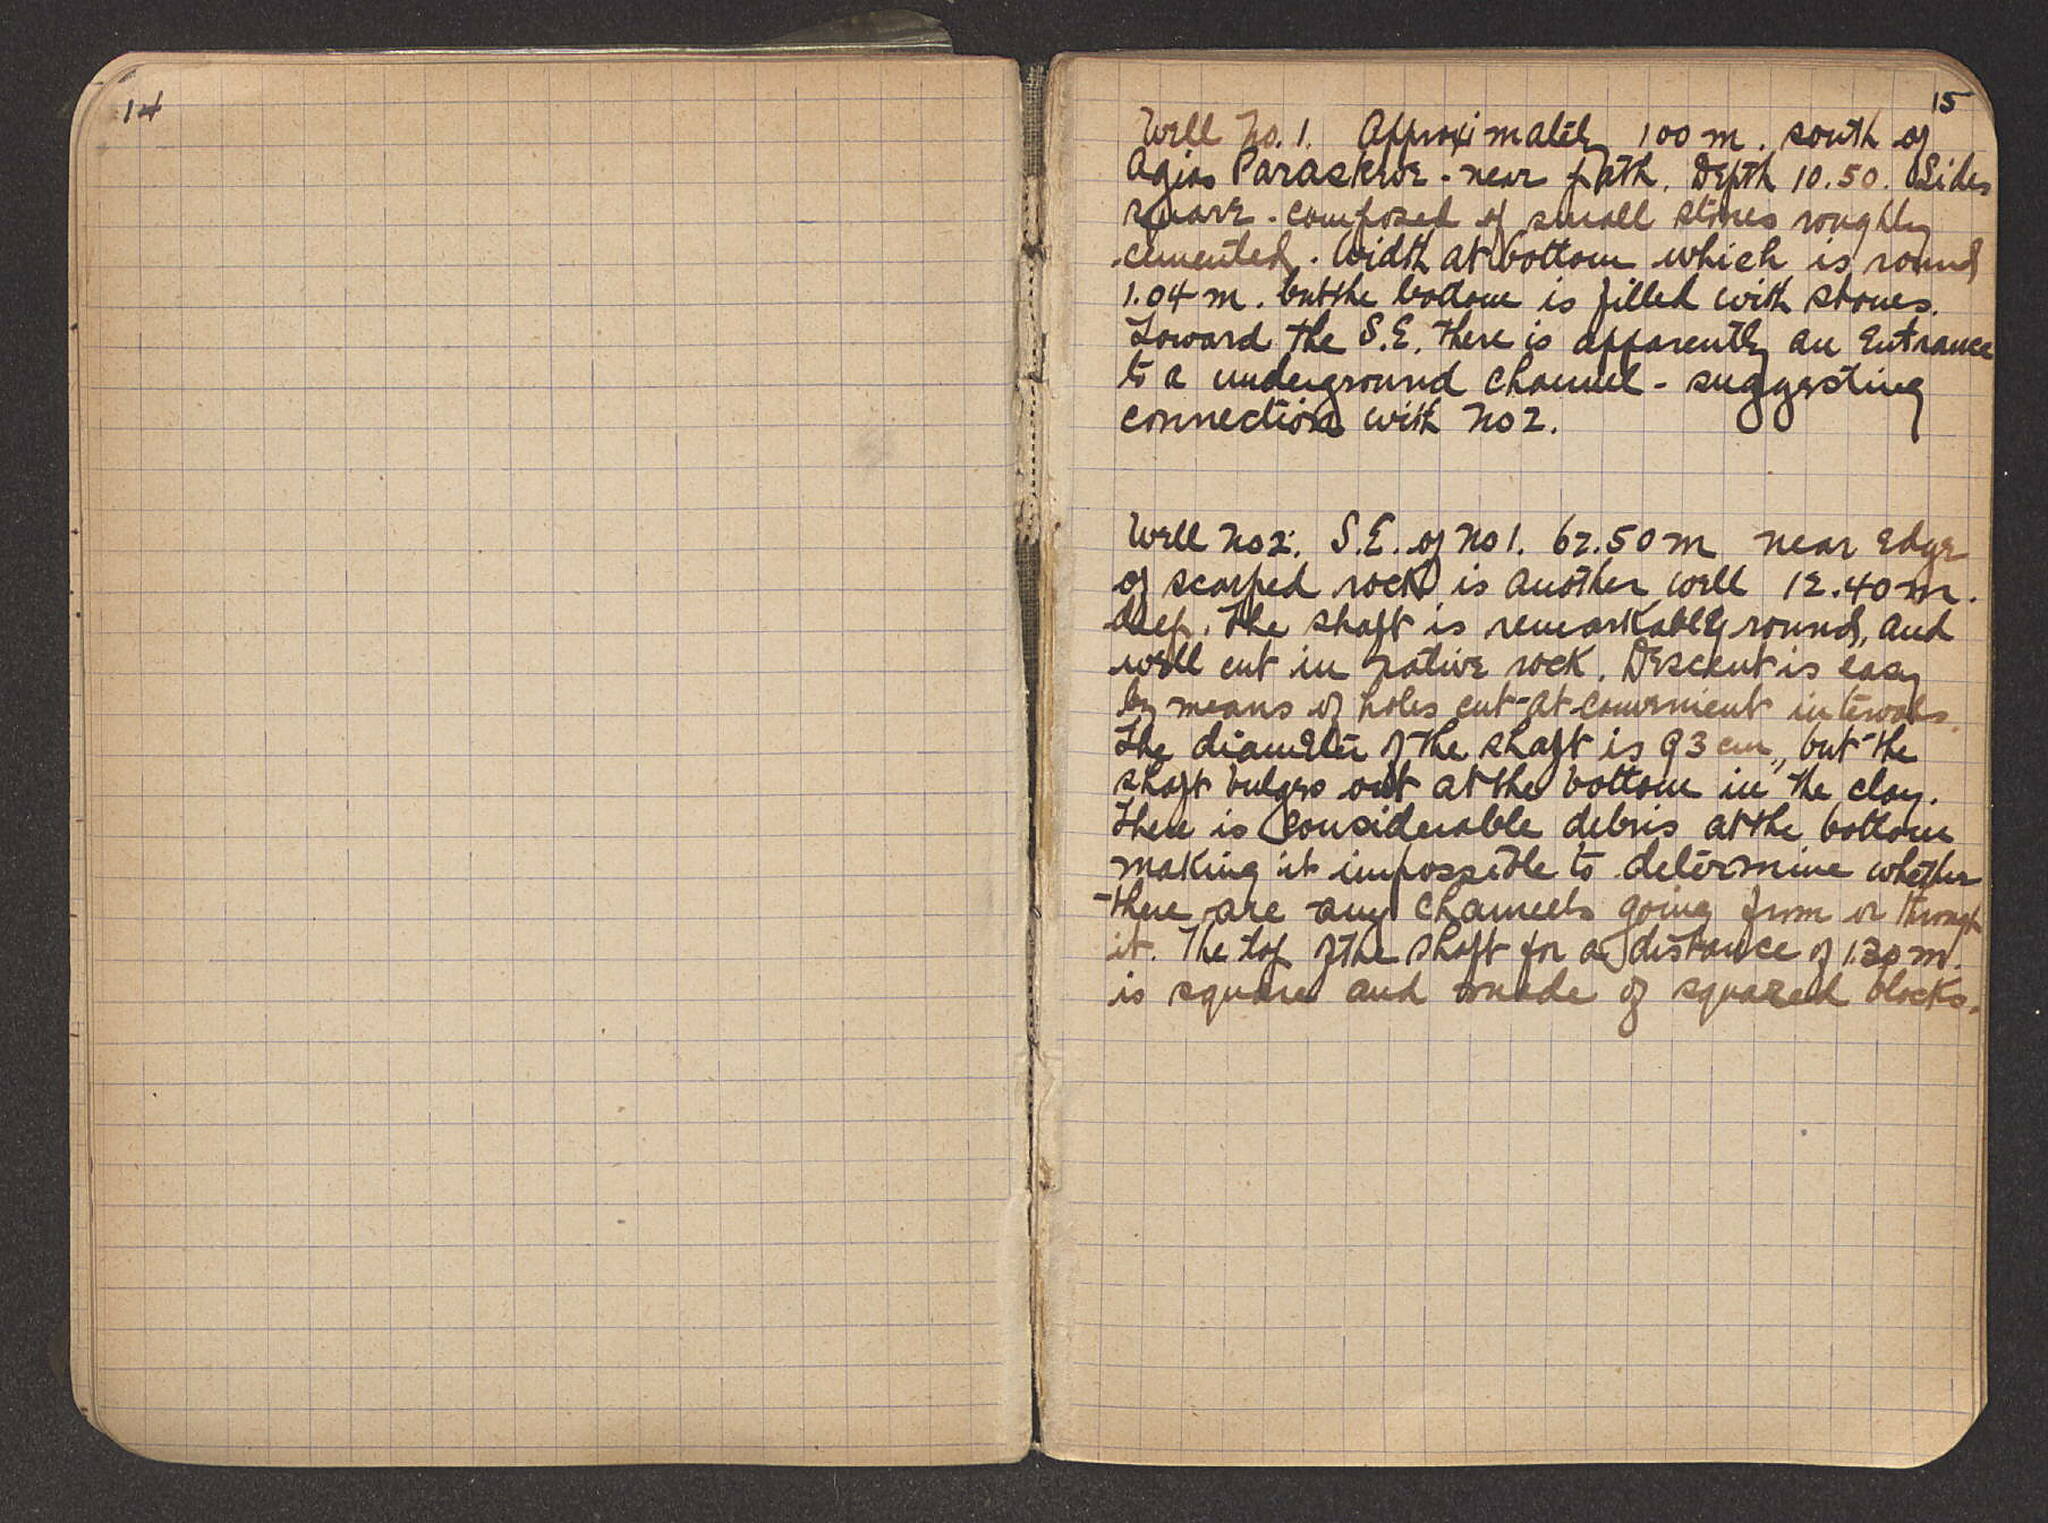 14
15
Well No. 1. Approximately 100 m. south of
Agias Paraskeve - near path. Depth 10.50. Sides
square - composed of small stones roughly
cemented. Width at bottom which is round
1.04 m. but the bottom is filled with stones.
Toward the S.E. there is apparently an entrance
to a underground channel - suggesting
connection with No 2.
Well No 2. S.E. of No 1. 62.50 m near edge
of scarped rock is another well 12.40 m.
deep. The shaft is remarkably round, and
well cut in native rock. Descent is easy
by means of holes cut at convenient intervals.
The diameter of the shaft is 93 cm, but the
shaft bulges out at the bottom in the clay.
There is considerable debris at the bottom
making it impossible to determine whether
there are any channels going from or through
it. The top of the shaft for a distance of 1.30 m.
is square and made of squared blocks.